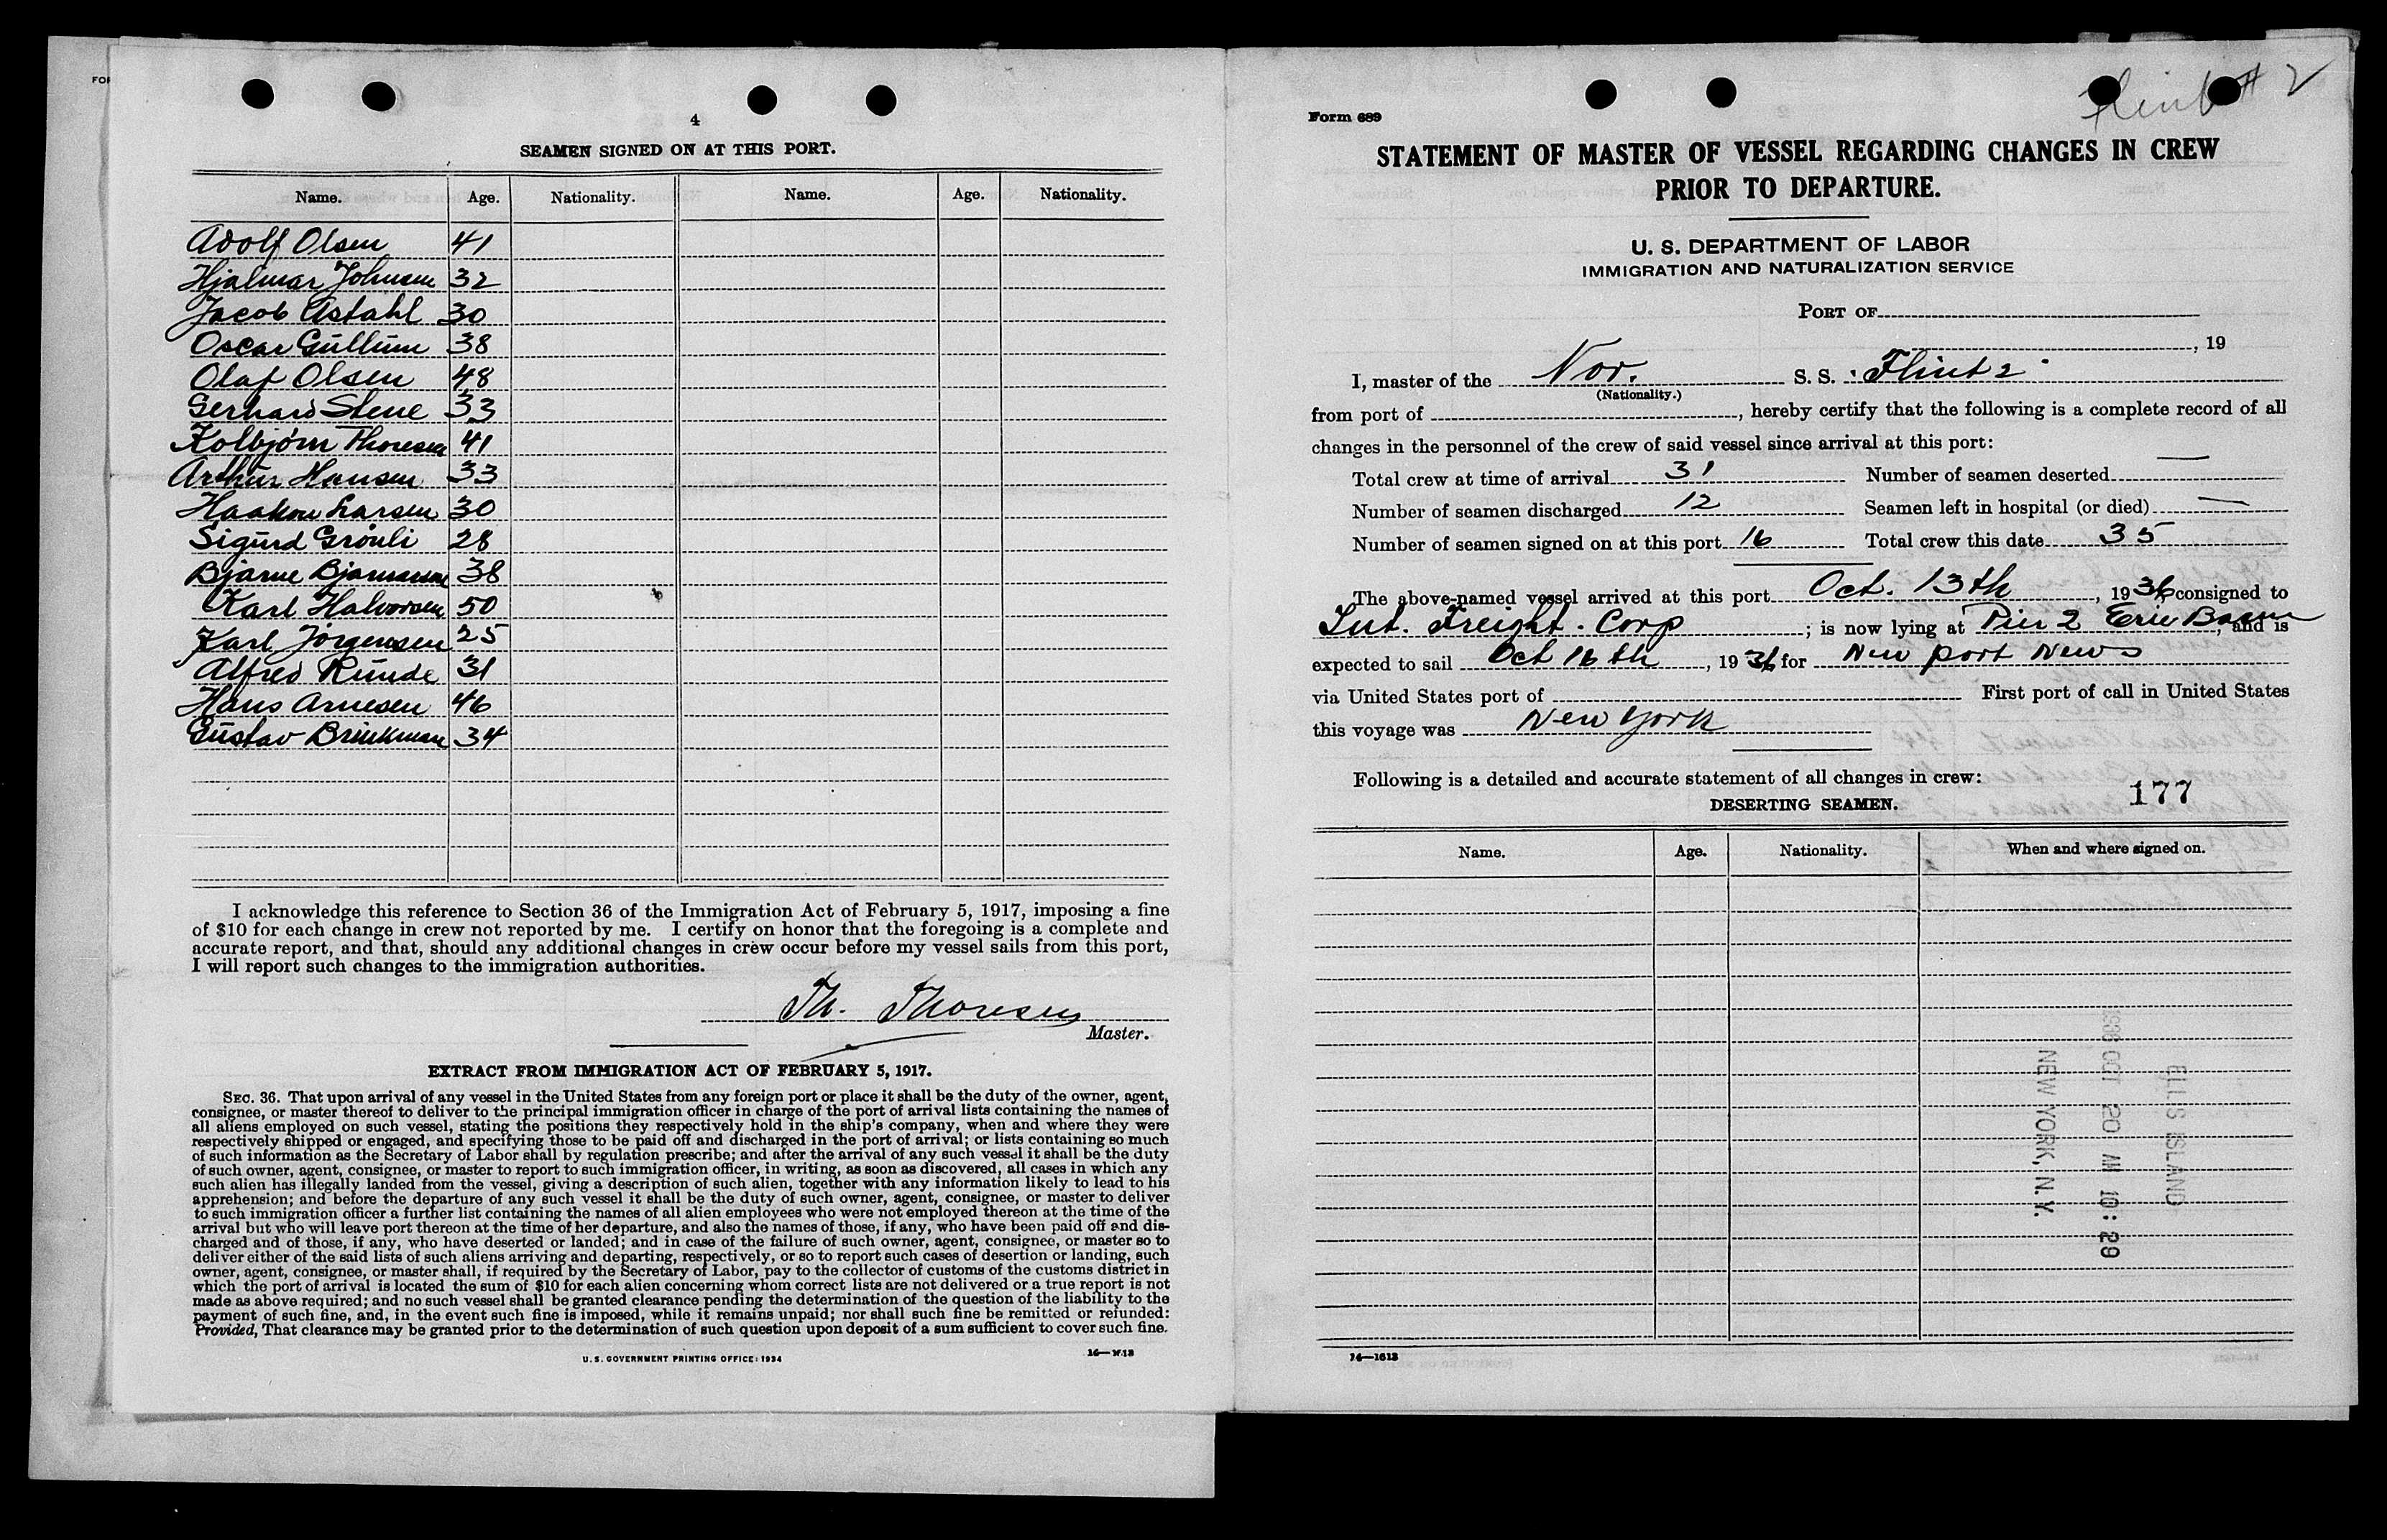 FOR
4
SEAMEN SIGNED ON AT THIS PORT.
Name. Age. Nationality. Name. Age. Nationality.
Adolf Olsen 41
Hjalmar Johnsen 32
Jacob Astahl 30
Oscar Gullum 38
Olaf Olsen 48
Gerhard Stene 33
Kolbjörn Thoresen 41
Arthur Hansen 33
Haakon Larsen 30
Sigurd Grönli 28
Bjarne Bjarnason 38
Karl Halvorsen 50
Karl Jörgensen 25
Alfred Runde 31
Hans Arnesen 46
Gustav Brinkman 34
I acknowledge this reference to Section 36 of the Immigration Act of February 5, 1917, imposing a fine
of $10 for each change in crew not reported by me. I certify on honor that the foregoing is a complete and
accurate report, and that, should any additional changes in crew occur before my vessel sails from this port,
I will report such changes to the immigration authorities.
Th. Thoresen
Master.
EXTRACT FROM IMMIGRATION ACT OF FEBRUARY 5, 1917.
SEC. 36. That upon arrival of any vessel in the United States from any foreign port or place it shall be the duty of the owner, agent,
consignee, or master thereof to deliver to the principal immigration officer in charge of the port of arrival lists containing the names of
all aliens employed on such vessel, stating the positions they respectively hold in the ship's company, when and where they were
respectively shipped or engaged, and specifying those to be paid off and discharged in the port of arrival; or lists containing so much
of such information as the Secretary of Labor shall by regulation prescribe; and after the arrival of any such vessel it shall be the duty
of such owner, agent, consignee, or master to report to such immigration officer, in writing, as soon as discovered, all cases in which any
such alien has illegally landed from the vessel, giving a description of such alien, together with any information likely to lead to his
apprehension; and before the departure of any such vessel it shall be the duty of such owner, agent, consignee, or master to deliver
to such immigration officer a further list containing the names of all alien employees who were not employed thereon at the time of the
arrival but who will leave port thereon at the time of her departure, and also the names of those, if any, who have been paid off and dis-
charged and of those, if any, who have deserted or landed; and in case of the failure of such owner, agent, consignee, or master so to
deliver either of the said lists of such aliens arriving and departing, respectively, or so to report such cases of desertion or landing, such
owner, agent, consignee, or master shall, if required by the Secretary of Labor, pay to the collector of customs of the customs district in
which the port of arrival is located the sum of $10 for each alien concerning whom correct lists are not delivered or a true report is not
made as above required; and no such vessel shall be granted clearance pending the determination of the question of the liability to the
payment of such fine, and, in the event such fine is imposed, while it remains unpaid; nor shall such fine be remitted or refunded:
Provided, That clearance may be granted prior to the determination of such question upon deposit of a sum sufficient to cover such fine.
U. S. GOVERNMENT PRINTING OFFICE: 1934
Flint # 2
Form 689
STATEMENT OF MASTER OF VESSEL REGARDING CHANGES IN CREW
PRIOR TO DEPARTURE.
U. S. DEPARTMENT OF LABOR
IMMIGRATION AND NATURALIZATION SERVICE
PORT OF
, 19
I, master of the Nor. S. S. "Flint 2"
(Nationality.)
from port of , hereby certify that the following is a complete record of all
changes in the personnel of the crew of said vessel since arrival at this port:
Total crew at time of arrival 31 Number of seamen deserted —
Number of seamen discharged 12 Seamen left in hospital (or died) —
Number of seamen signed on at this port 16 Total crew this date 35
The above-named vessel arrived at this port Oct. 13th, 1936 consigned to
Int. Freight. Corp ; is now lying at Pier 2 Erie Basin, and is
expected to sail Oct 16th, 1936 for New port News
via United States port of First port of call in United States
this voyage was New York
Following is a detailed and accurate statement of all changes in crew:
177
DESERTING SEAMEN.
Name. Age. Nationality. When and where signed on.
ELLIS ISLAND
936 OCT 20 AM 10:29
NEW YORK, N. Y.
14—1613